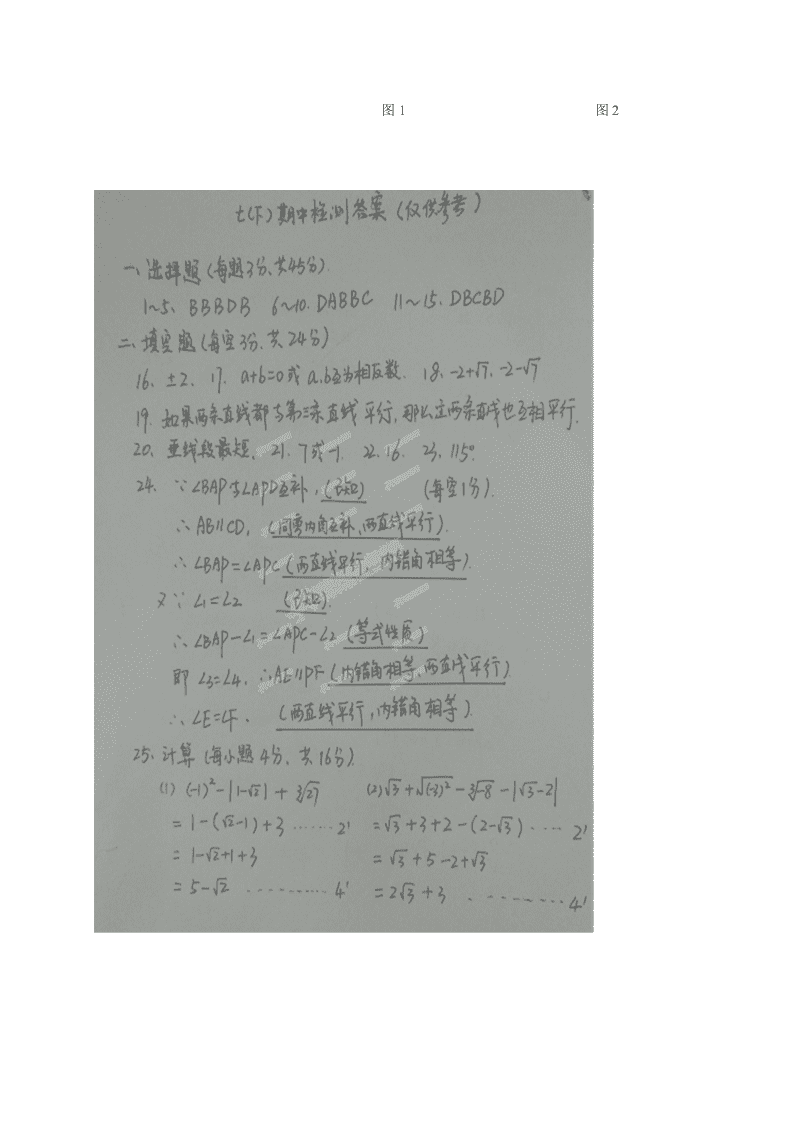 图 1 图 2
七(下)期中检测答案(仅供参考)
一、选择题(每题3分、共45分).
1~5、BBBDB 6~10. DABBC 11~15. DBCBD
二、填空题(每空3分.共24分)
16、±2、 17. a+b=0或a、b互为相反数. 18、-2+√7、-2-√7
19. 如果两条直线都与第三条直线平行,那么这两条直线也互相平行.
20、垂线段最短. 21. 7或-1. 22. 16. 23. 115°.
24. ∵∠BAP与∠APD互补,(已知) (每空1分).
∴AB∥CD. (同旁内角互补、两直线平行).
∴∠BAP=∠APC(两直线平行,内错角相等).
又∵∠1=∠2 (已知).
∴∠BAP-∠1=∠APC-∠2(等式性质)
即∠3=∠4. ∴AE∥PF(内错角相等、两直线平行)
∴∠E=∠F. (两直线平行,内错角相等).
25、计算(每小题4分、共16分).
(1) (-1)²-|1-√2|+∛27 (2)√3+√(-3)²-∛-8-|√3-2|
=1-(√2-1)+3 ······2' =√3+3+2-(2-√3)····2'
=1-√2+1+3 =√3+5-2+√3
=5-√2 ··········4' =2√3+3 ·········4'